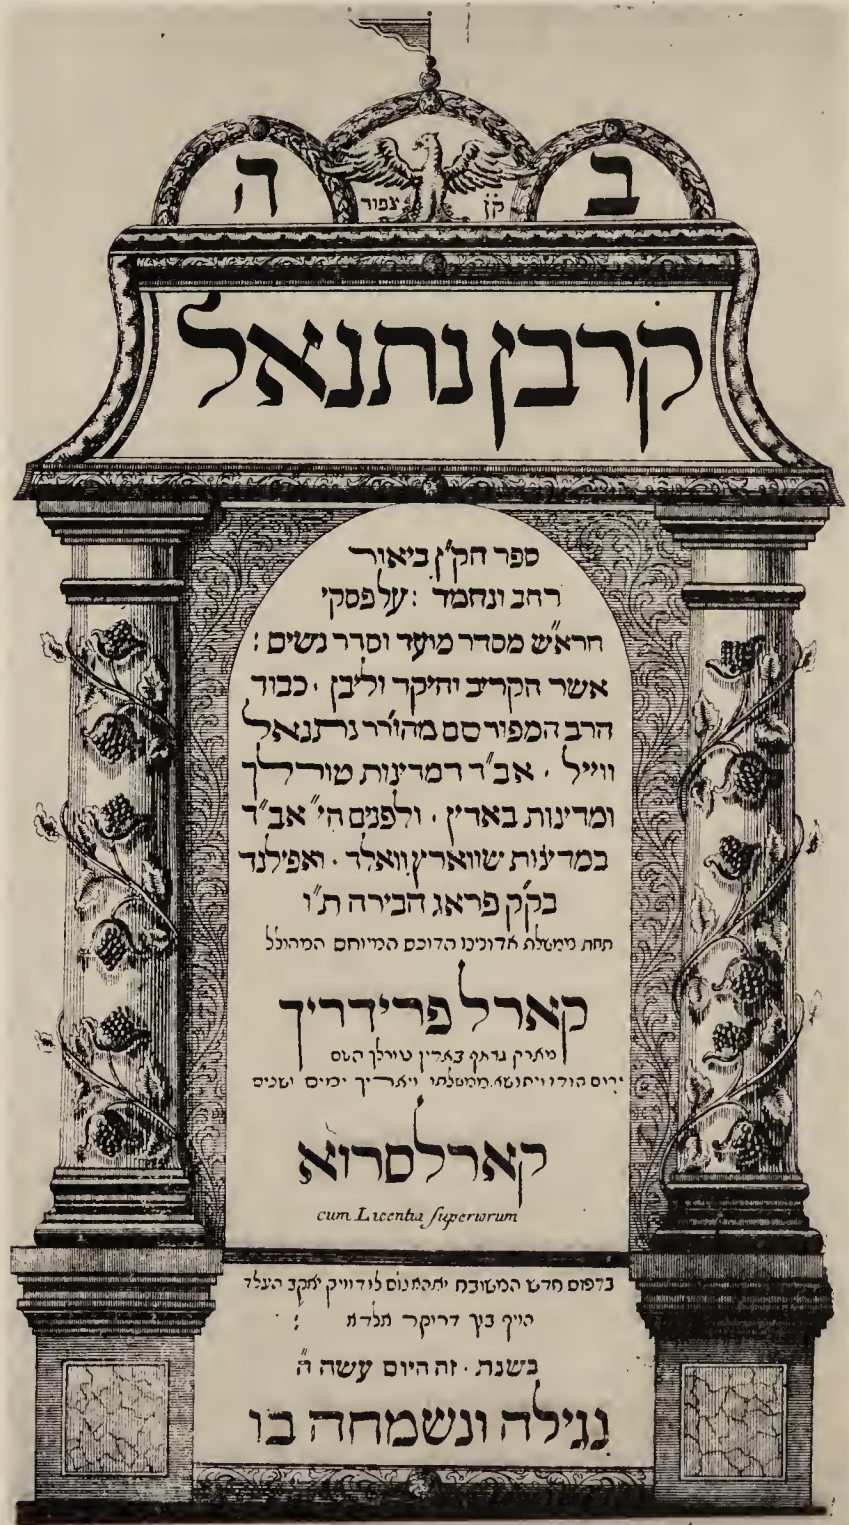 ב ה
קן צפור
קרבן נתנאל
ספר הק"ן ביאור
רחב ונחמד : על פסקי
הרא"ש מסדר מועד וסדר נשים :
אשר הקריב וחיקר וליבן · כבוד
הרב המפורסם מהורר נתנאל
ווייל · אב"ד דמדינות טורלך
ומדינות באדין · ולפנים הי" אב"ד
במדינות שווארץ וואלד · ואפילנד
בק"ק פראג הבירה ת"ו
תחת ממשלת אדונינו הדוכס המיוחס המהולל
קארל פרידריך
מארק גראף באדין טורלך השם
ירום הודו וינושא ממשלתו ויאריך ימים ושנים
קארלסרוא
cum Licentia superiorum
בדפוס חדש המשובח יאהאנוס לודוויק יאקב העלד
הויף בוך דריקר אלדא :
בשנת · זה היום עשה ה"
נגילה ונשמחה בו